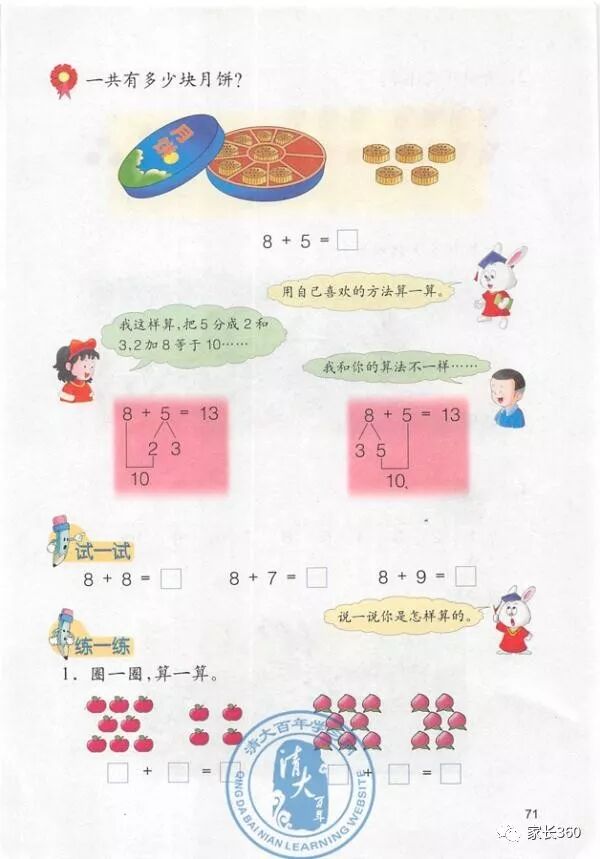 一共有多少块月饼?
月饼
8 + 5 = □
用自己喜欢的方法算一算。
我这样算,把5分成2和
3,2加8等于10……
我和你的算法不一样……
8 + 5 = 13
2 3
10
8 + 5 = 13
3 5
10
试一试
8 + 8 = □
8 + 7 = □
8 + 9 = □
说一说你是怎样算的。
练一练
1. 圈一圈,算一算。
□ + □ = □
□ + □ = □
清大百年学习网
清大
百年
QING DA BAI NIAN LEARNING WEBSITE
71
家长360